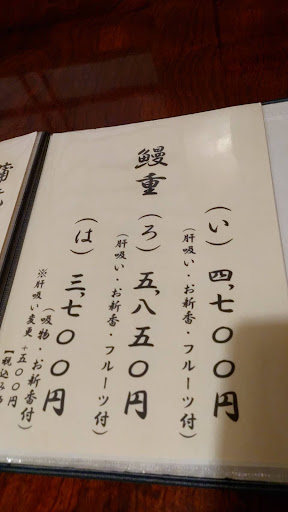 鰻重
(い) 四,七〇〇円
(肝吸い・お新香・フルーツ付)
(ろ) 五,八五〇円
(肝吸い・お新香・フルーツ付)
(は) 三,七〇〇円
(吸物・お新香付)
※肝吸い変更+五〇〇円